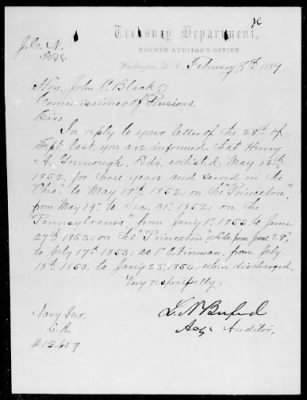 Treasury Department,
FOURTH AUDITOR'S OFFICE,
Washington, D. C., February 8th, 1889
Hon. John C. Black
Commissioner of Pensions.
Sir:
In reply to your letter of the 28th of
Sept. last you are informed that Henry
A. enlisted May 12th
1852, for three years and served on the
"Ohio" to May 18th 1852: on the "Princeton"
from May 19th to Dec. 31st 1852: on the
"Pennsylvania" from Jany 1st 1853 to June
27th 1853: on the "Princeton" from June 28th
to July 17th 1853: as 1st C. Fireman, from July
18th 1853, to Jany 23, 1854, when discharged.
Very respectfully,
L. N. Buford
Acg. Auditor.
Navy Inv.
# 13659